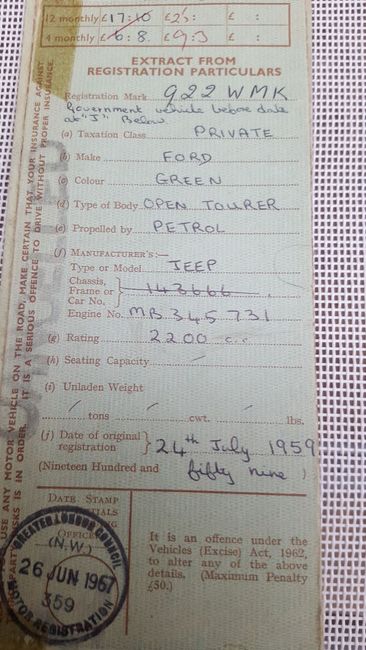 12 monthly £17:10 £ : £ :
4 monthly £6:8. £9:3 £ :
EXTRACT FROM
REGISTRATION PARTICULARS
Registration Mark 922 WMK
Government vehicle before date
at "J" Below
(a) Taxation Class PRIVATE
(b) Make FORD
(c) Colour GREEN
(d) Type of Body OPEN TOURER
(e) Propelled by PETROL
(f) MANUFACTURER'S:—
Type or Model JEEP
Chassis,
Frame or 143666
Car No.
Engine No. MB 345 731
(g) Rating 2200 c.c.
(h) Seating Capacity
(i) Unladen Weight
tons cwt. lbs.
(j) Date of original
registration } 24th July 1959
(Nineteen Hundred and fifty nine )
DATE STAMP
OFFICE
GREATER LONDON COUNCIL
(N.W.)
26 JUN 1967
359
MOTOR REGISTRATION
It is an offence under the
Vehicles (Excise) Act, 1962,
to alter any of the above
details. (Maximum Penalty
£50.)
USE ANY MOTOR VEHICLE ON THE ROAD, MAKE CERTAIN THAT YOUR INSURANCE AGAINST
PARTY RISKS IS IN ORDER. IT IS A SERIOUS OFFENCE TO DRIVE WITHOUT PROPER INSURANCE.